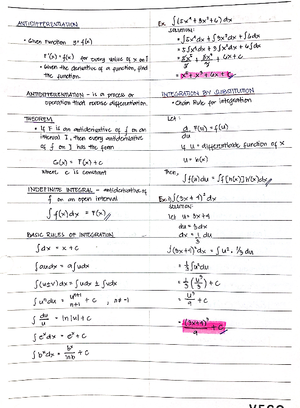 ANTIDIFFERENTIATION
• Given Function y = f(x)
F'(x) = f(x) for every value of x on I
• Given the derivative of a function, find
the function.
ANTIDIFFERENTIATION – is a process or
operation that reverse differentiation.
THEOREM
• If F is an antiderivative of f on an
interval I, then every antiderivative
of f on I has the form
G(x) = F(x) + C
where C is constant
INDEFINITE INTEGRAL – antiderivative of
f on an open interval
∫ f(x) dx = F(x)
BASIC RULES OF INTEGRATION
∫ dx = x + C
∫ audx = a∫udx
∫(u±v)dx = ∫udx ± ∫vdx
∫ uⁿdu = uⁿ⁺¹/n+1 + C , n ≠ -1
∫ du/u = ln|u| + C
∫ eˣdx = eˣ + C
∫ bˣdx = bˣ/lnb + C
Ex. ∫(5x⁴ + 3x² + 6) dx
SOLUTION:
= ∫5x⁴dx + ∫3x²dx + ∫6dx
= 5∫x⁴dx + 3∫x²dx + 6∫dx
= 5x⁵/5 + 3x³/3 + 6x + C
= x⁵ + x³ + 6x + C
INTEGRATION BY SUBSTITUTION
• Chain Rule for Integration
Let:
d/du F(u) = f(u)
If u = differentiable function of x
u = h(x)
Then, ∫f(u)du = ∫f[h(x)]h'(x)dx
Ex. ∫(3x + 4)² dx
SOLUTION:
let u = 3x + 4
du = 3dx
dx = 1/3
∫(3x+4)²dx = ∫u² · 1/3 du
= 1/3 ∫u²du
= 1/3 (u³/3) + C
= u³/9 + C
= (3x+4)³/9 + C